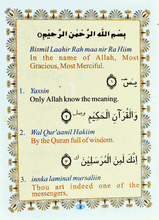 بِسْمِ اللهِ الرَّحْمٰنِ الرَّحِيْمِ
Bismil Laahir Rah maa nir Ra Hiim
In the name of Allah, Most
Gracious, Most Merciful.
يٰسٓ
1. Yassin
Only Allah know the meaning.
وَالْقُرْآنِ الْحَكِيْمِ
2. Wal Qur'aanil Hakiim
By the Quran full of wisdom.
إِنَّكَ لَمِنَ الْمُرْسَلِيْنَ
3. innska laminal mursaliin
Thou art indeed one of the
messengers.
2